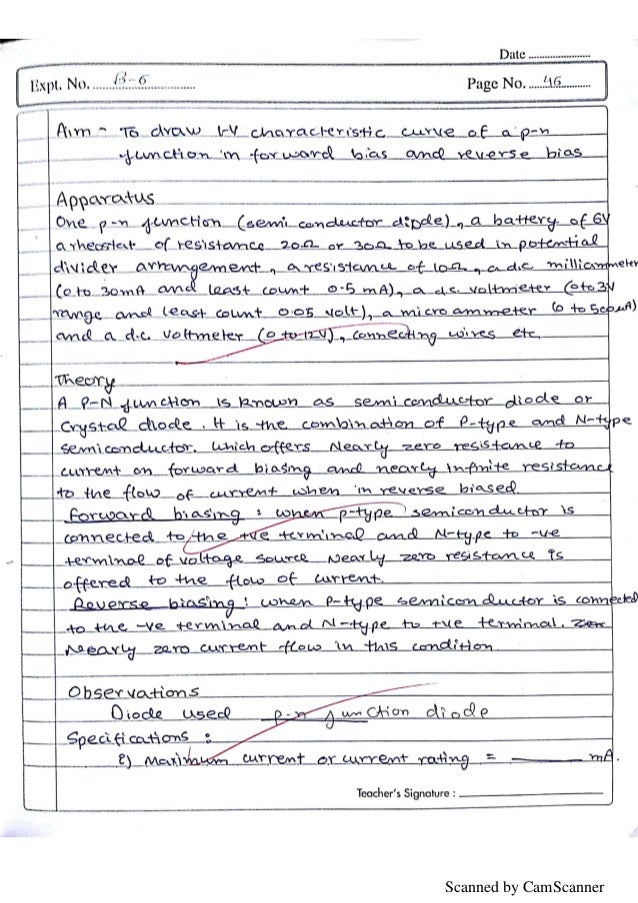 Date ........................
Expt. No. B-6
Page No. 46
Aim - To draw I-V characteristic curve of a p-n
junction in forward bias and reverse bias
Apparatus
One p-n junction (semi conductor diode), a battery of 6V
a rheostat of resistance 20Ω or 30Ω to be used in potential
divider arrangement, a resistance of 10Ω, a d.c milliammeter
(0 to 30mA and least count 0.5 mA), a d.c. voltmeter (0 to 3V
range and least count 0.05 volt), a micro ammeter (0 to 500μA)
and a d.c. voltmeter (0 to 12V), connecting wires etc.
Theory
A P-N junction is known as semi conductor diode or
Crystal diode. It is the combination of P-type and N-type
semiconductor. which offers Nearly zero resistance to
current on forward biasing and nearly Infinite resistance
to the flow of current when in reverse biased.
Forward biasing : when p-type semiconductor is
connected to the +ve terminal and N-type to -ve
terminal of voltage source Nearly zero resistance is
offered to the flow of current.
Reverse biasing : when P-type semiconductor is connected
to the -ve terminal and N-type to +ve terminal.
Nearly zero current flow in this condition
Observations
Diode used p-n junction diode
Specifications :
Maximum current or current rating = ______ mA.
Teacher's Signature : ____________
Scanned by CamScanner